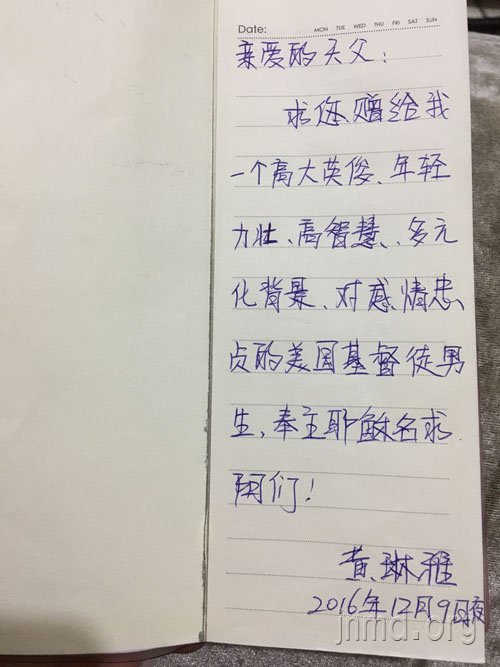 Date:
MON TUE WED THU FRI SAT SUN
亲爱的天父：
求您赠给我
一个高大英俊、年轻
力壮、高智慧、多元
化背景、对感情忠
贞的美国基督徒男
生，奉主耶稣名求
阿们！
黄琳雅
2016年12月9日夜
jnmd.org